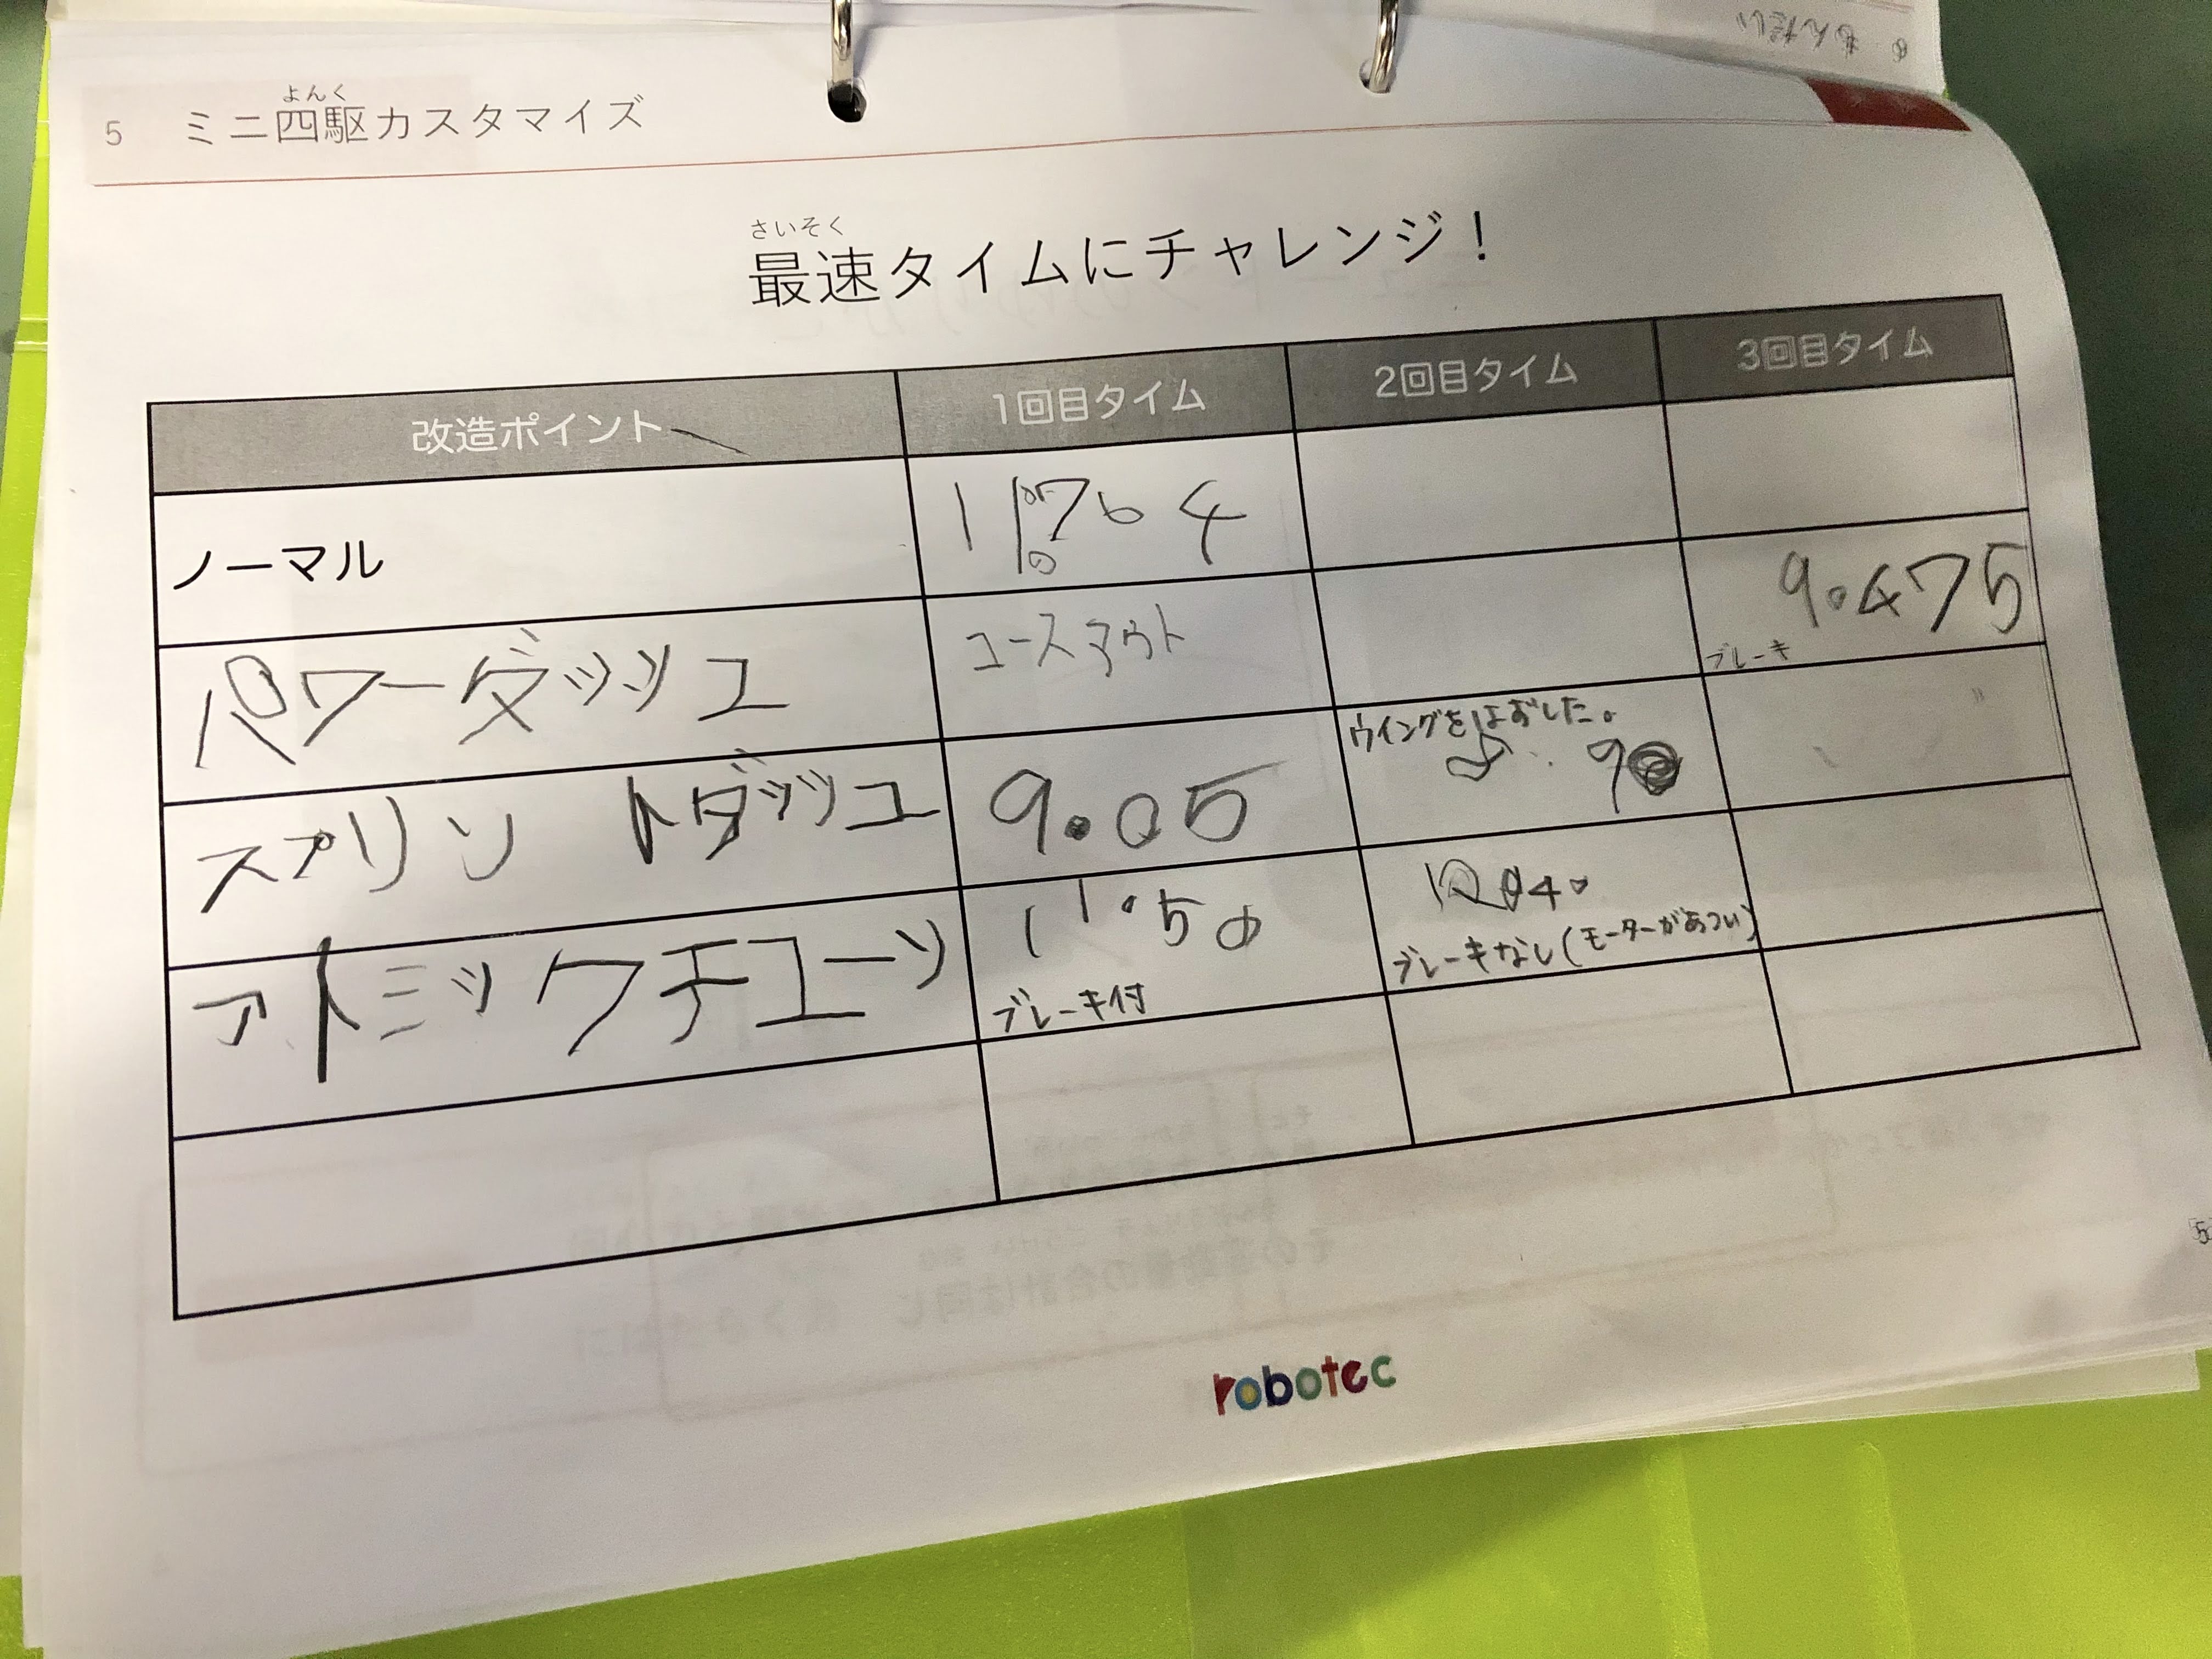 もんだい
よんく
5 ミニ四駆カスタマイズ
さいそく
最速タイムにチャレンジ！
改造ポイント 1回目タイム 2回目タイム 3回目タイム
ノーマル
パワーダッシュ コースアウト 9.475
ブレーキ
スプリントダッシュ 9.05 ウイングをはずした。
アトミックチューン 11.50
ブレーキ付 ブレーキなし(モーターがあつい)
robotec